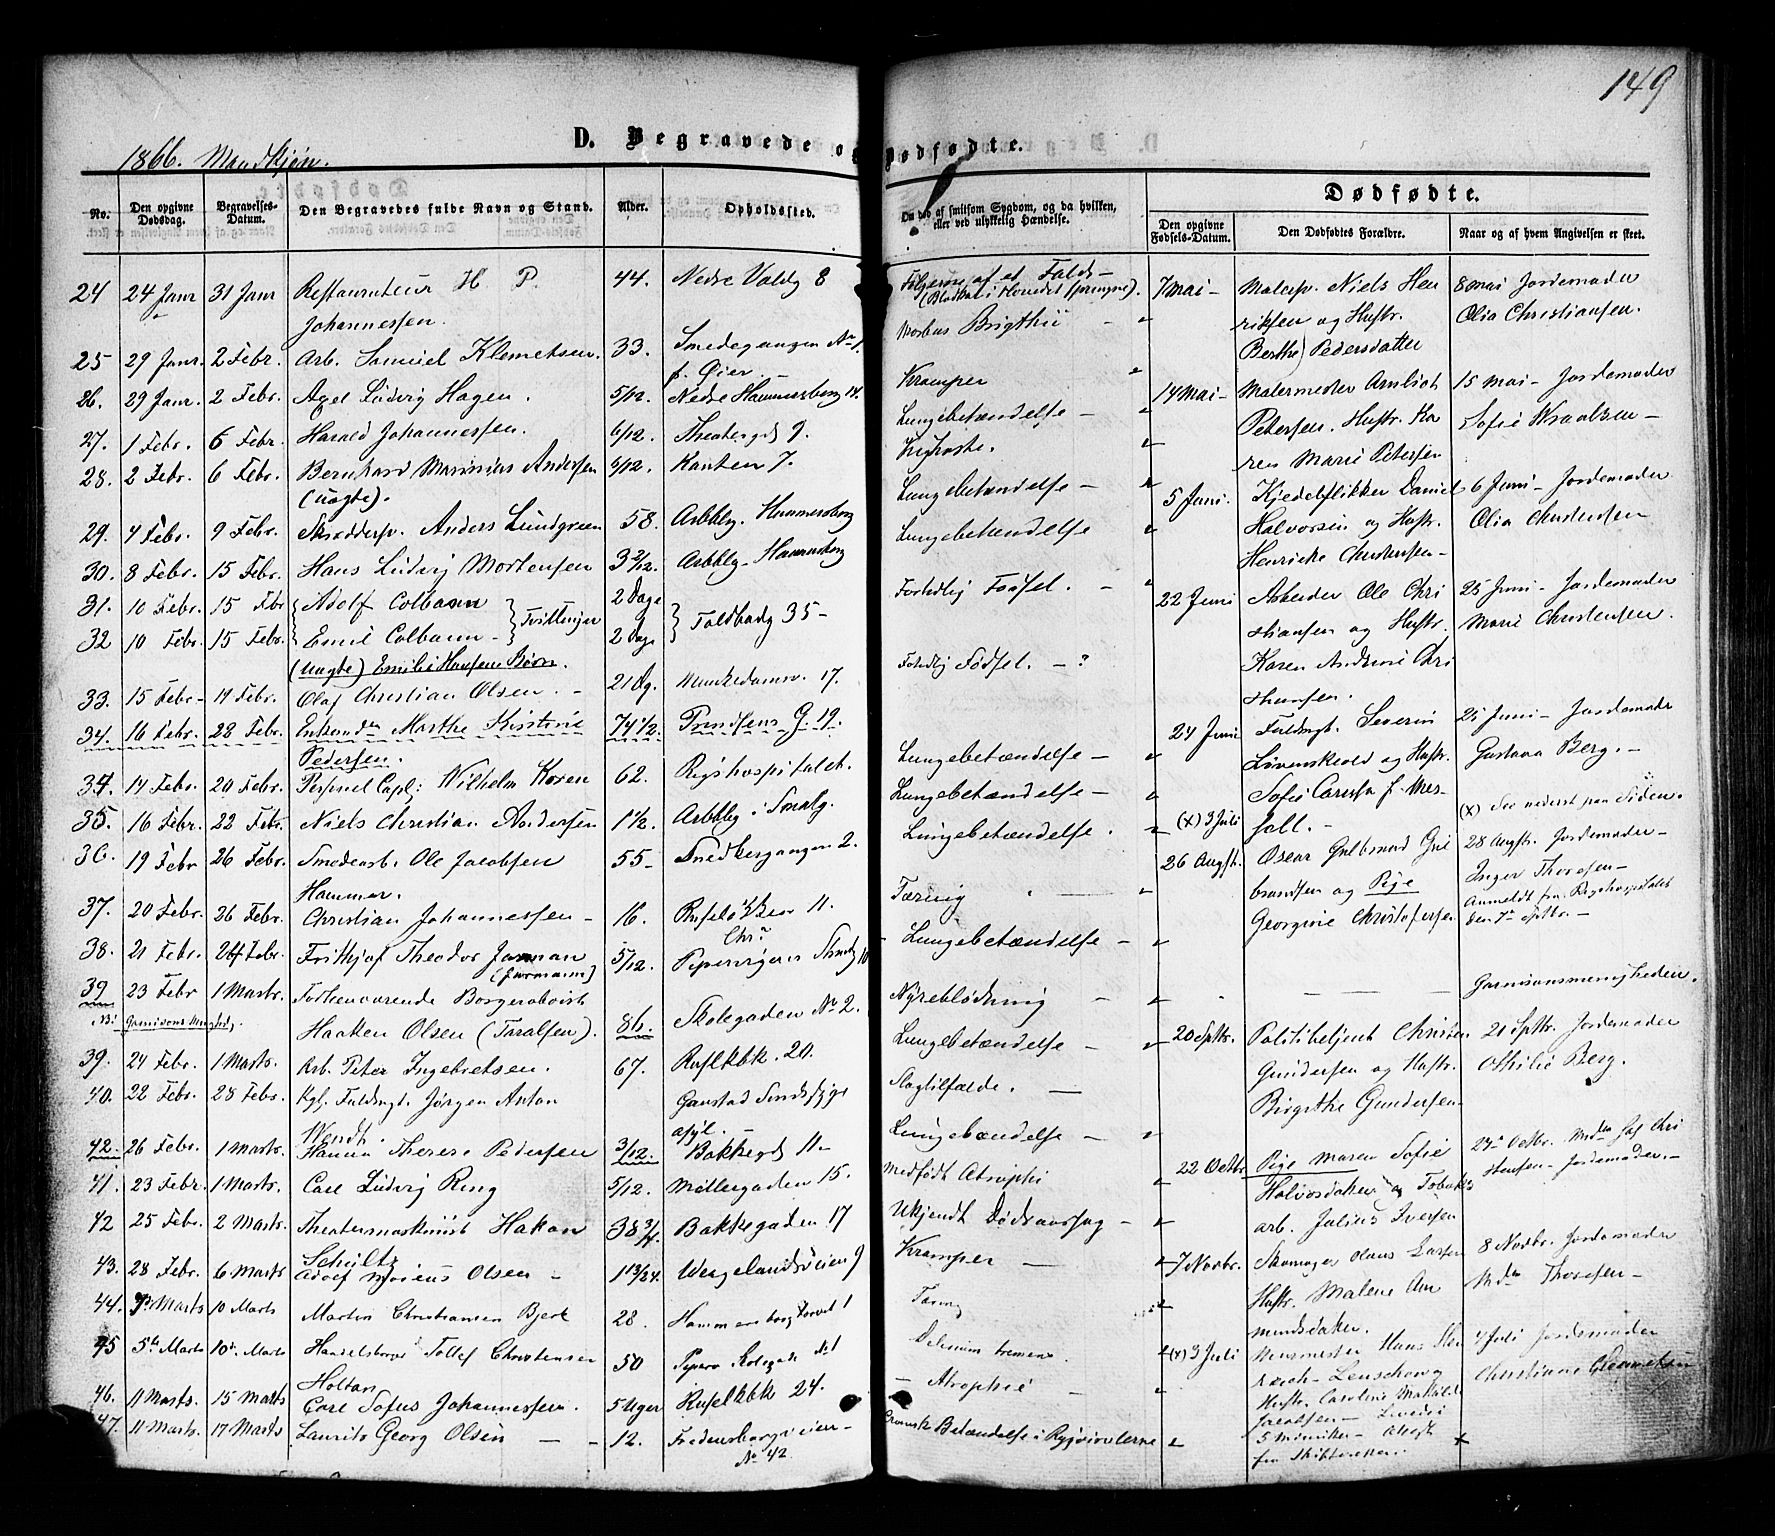 149
1866. Mandkjøn.
D. Begravede og Dødfødte.
No. | Den opgivne Dødsdag. | Begravelses-Datum. | Den Begravedes fulde Navn og Stand. | Alder. | Opholdssted. | Om død af smitsom Sygdom, og da hvilken, eller ved ulykkelig Hændelse.
24 | 24 Janr | 31 Janr | Restaurateur H P. | 44. | Nedre Voldg 8 | Følgerne af et Fald-
Johannessen.
25 | 29 Janr. | 2 Febr. | Arb. Samuel Klemetsen. | 33. | Smedegangen No 1. | Morbus Brigthii
26. | 29 Janr. | 2 Febr. | Axel Ludvig Hagen. | 5/12. | Nedre Hammersborg 14. | Kramper
27. | 1 Febr. | 6 Febr. | Harald Johannessen. | 6/12. | Theatergd 9. | Lungebetændelse -
28. | 2 Febr. | 6 Febr. | Bernhard Marinius Andersen | Kanten 7. | Kighoste.
(uægte).
29. | 4 Febr. | 9 Febr. | Skrædersv. Anders Lundgreen | 58. | Arbblg. Hammersborg | Lungebetændelse -
30. | 8 Febr. | 15 Febr. | Hans Ludvig Mortensen | 3 2/12. | Arbblg. Hammersborg | Lungebetændelse
31. | 10 Febr. | 15 Febr | Adolf Colbann | Tvillinger | 2 Dage | Toldbodg 35 - | Fortidlig Fødsel.
32 | 10 Febr. | 15 Febr. | Emil Colbann - | 2 Dage
(uægte) Emilie Hansens Børn.
33. | 15 Febr - | 19 Febr. | Olaf Christian Olsen. - | 21 Dg. | Munkedamsv. 17. | Fortidlig Fødsel. - ?
34. | 16 Febr. | 28 Febr. | Enkemdm Marthe Kirstine | 74 1/2. | Prindsens G. 19.
Pedersen.
34. | 14 Febr. | 20 Febr. | Personel Capl: Wilhelm Koren | 62. | Rigshospitalet. | Lungebetændelse -
35. | 16 Febr. | 22 Febr. | Niels Christian Andersen | 1 1/2. | Arbblg i Smalg. | Lungebetændelse -
36. | 19 Febr | 26 Febr. | Smedearb. Ole Jacobsen | 55 - | Snedkergangen 2. | Lungebetændelse.
Hammer.
37. | 20 Febr. | 26 Febr. | Christian Johannessen - | 16. | Ruseløkbk 11. | Tæring
38. | 21 Febr. | 26 Febr. | Frithjof Theodor Jarman | 5/12. | Pipervigens Strandg 10 | Lungebetændelse -
(Jarmann)
39 | 23 Febr | 1 Marts. | Forhenværende Borgerhoboist
NB. Garnisons Meghed. | Haaken Olsen (Taralsen). | 86. | Skolegaden No 2. | Nyreblødning
39. | 24 Febr. | 1 Marts. | Arb. Peter Ingebretsen. | 67. | Ruslkbk. 20. | Lungebetændelse -
40. | 22 Febr. | 28 Febr. | Kgl. Fuldmgt. Jørgen Anton | Gaustad Sindssyge | Slagtilfælde. -
Wendt. | asyl.
42. | 26 Febr. | 1 Marts. | Hanna Therese Pedersen | 3/12. | Bakkegd 11. | Lungebændelse -
41. | 23 Febr. | 1 Marts. | Carl Ludvig Ring | 5/12. | Møllergaden 15. | Medfødt Atrophi
42 | 25 Febr. | 2 Marts. | Theatermaskinist Hakon | 38 3/4. | Bakkegaden 17 | Ukjendt Dødsaarsag -
Schultz
43. | 28 Febr. | 6 Marts | Adolf Marius Olsen - | 1 13/24. | Wergelandsveien 9 | Kramper -
44. | Marts | 10 Marts | Martin Christiansen Bjerk | 28. | Hammersborg Torvet 1 | Tæring
45 | 5te Marts | 10de Marts | Handelsborger Tollef Christensen | 50 | Piperv Skolegade No 1 | Delirium tremens.
Holtan
46. | 11 Marts. | 15 Marts | Carl Sofus Johannessen. | 5 Uger | Ruselkbk 24. | - Atrophie -
47. | 11 Marts. | 17 Marts | Laurits Georg Olsen - | 12. | Fredensborgveien - | Chronisk Betændelse i Ryghvirvlerne
No 42.
Dødfødte.
Den opgivne Fødsels-Datum. | Den Dødfødtes Forældre. | Naar og af hvem Angivelsen er skeet.
7 Mai - | Malersv. Niels Hen | 8 Mai Jordemoder
riksen og Hustr. | Olia Christiansen.
Berthe Pedersdatter
14 Mai - | Malermester Arnliot | 15 Mai - Jordemoder
Petersen. Hustr. Ka | Sofie Wraalsen -
ren Marie Petersen
5 Juni. | Kjedelflikker Daniel | 6 Juni - Jordemoder
Halvorsen og Hustr. | Olia Christensen
Henricke Christensen -
22 Juni | Arbeider Ole Chri | 25 Juni - Jordemoder
stiansen og Hustr. | Marie Christensen.
Karen Andrine Chri
stiansen.
24 Juni | Fuldmgt. Severin | 25 Juni - Jordemoder
Løvenskiold og Hustr. | Gustava Berg. -
Sofie Carissa f. Mes
(x) 3 Juli | søll. - | (x) See nederst paa Siden.
26 Augst. | Oscar Gulbrand Gul | 28 Augstr. Jordemoder -
brandsen og Pige | Inger Thoresen -
Georgine Christofersen | Anmeldt fra Rigshospitalet
den 7de Septbr. -
Garnisonsmenigheden.
20 Septbr. | Politibetjent Christen | 21 Septbr. Jordemoder
Gundersen og Hustr. | Othilie Berg.
Birgithe Gundersen
22 Octbr | Pige Maren Sofie | 24de Octbr. Mdm Jaf Chri
Halvorsdatter og Tobaks | stensen - Jordemoder. -
arb. Julius Iversen
7 Novbr. | Skomager Olaus Larsen | 8 Novbr. Jordemoder
Hustr. Malene Am | Mdm Thoresen -
mundsdatter.
(x) 3 Juli | Murmester Hans Hen | 4 Juli Jordemoder
rich Lenschow og | Christiane Clemetsen
Hustr. Caroline Mathilde
Jacobsen - Levede
5 Minuter -